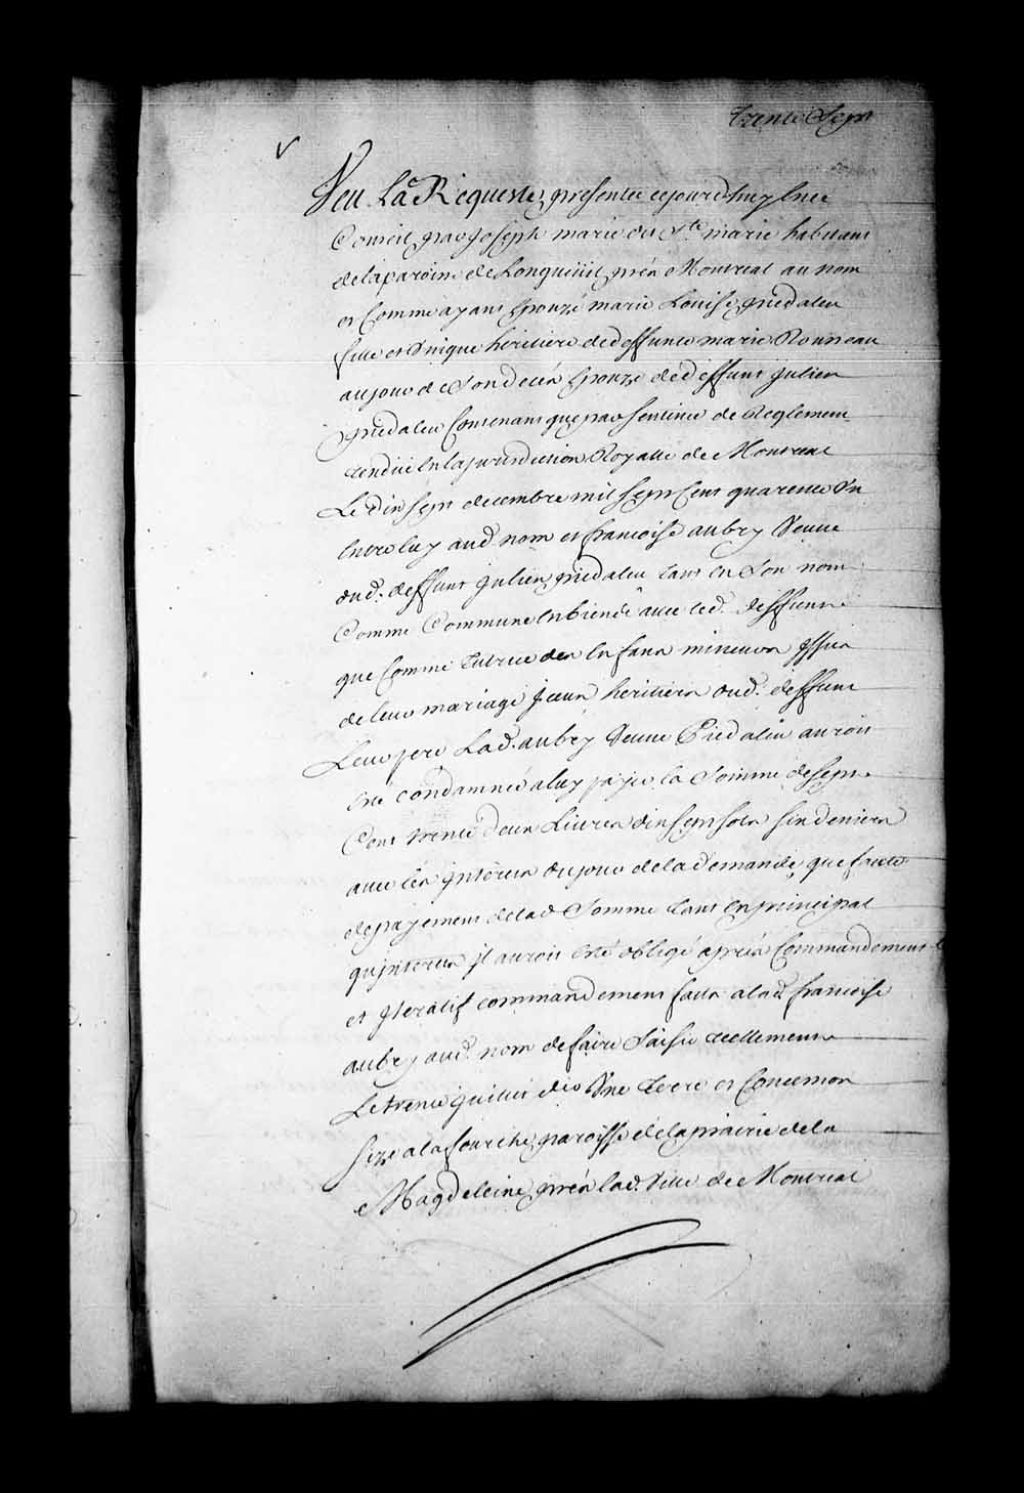 trente Sept
Veu La Requeste presentée cejourd'huy En ce
Conseil par Joseph marie dit Ste marie habitant
de la paroisse de Longueüil près Montreal au nom
et Comme ayant Epouzé marie Louise piedaleu
fille et Unique héritiere de deffunte marie
au jour de Son decés Epouze de deffunt Julien
piedaleu Contenant que par Sentence de Reglement
rendüe En la jurisdiction Royalle de Montreal
Le dix sept decembre mil Sept Cent quarente Un
Entre luy aud. nom et francoise aubry Veuve
dud. deffunt Julien piedaleu tant en Son nom
Comme Commune En biens avec led. deffunt
que Comme tutrice des Enfans mineurs Issus
de leur mariage Iceux heritiers dud. deffunt
Leur pere Lad. aubry Veuve Piedaleu auroit
Eté condamnée a luy payer la Somme de Sept
Cent trente deux Livres dix sept sols six deniers
avec les Interets du jour de la demande, que faute
de payement de lad. Somme tant En principal
qu'interets il auroit Eté obligé après Commandement
et Iteratif commandement faits a lad. francoise
aubry aud. nom de faire Saisir reellement
Le trente juillet dit Une terre et Concession
size a la fourche paroisse de la prairie de la
Magdeleine près lad. Ville de Montreal